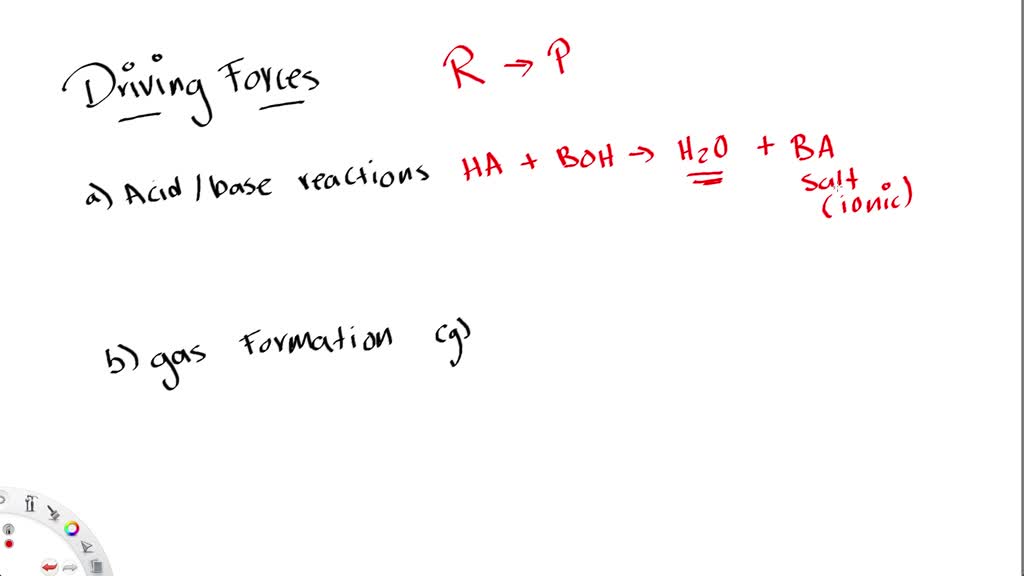 Driving Forces R → P
a) Acid/base reactions HA + BOH → H₂O + BA
salt
(ionic)
b) gas formation (g)